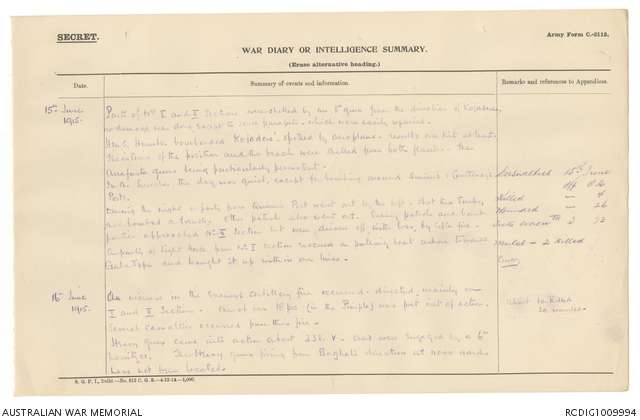 SECRET.
Army Form C.-2118.
WAR DIARY OR INTELLIGENCE SUMMARY.
(Erase alternative heading.)
Date.
Summary of events and information.
Remarks and references to Appendices.
15th June
1915.
Parts of No I and II Sections were shelled by an 8" gun from the direction of Kojadere,
no damage was done except to some parapets which were easily repaired.
H.M.S. Humber bombarded Kojadere, spotted by aeroplane - results one hit at least.
The of the position and the beach were shelled from both flanks - the
Anafarta guns being particularly persistent.
In the trenches the day was quiet, except for bombing around Quinn's & Courtney's
Posts.
During the night a party from Quinn's Post went out by the left, shot two Turks
and bombed a trench. Other patrols also went out. Enemy patrols and
parties approached No II Section but were driven off with loss, by rifle fire.
A party of Light Horse from No I Section rescued a boat ashore towards
Gaba Tepe and brought it up within our lines.
Casualties 15th June
Off O.R.
Killed - 4
Wounded - 26
Sick evacuated 2 72
Mules - 2 killed
16th June
1915.
An increase in the Enemy's Artillery fire occurred - directed mainly on
I and II Section. One of our 18 pdrs (in the Pimple) was put out of action.
Several casualties occurred from this fire.
Heavy guns came into action about 238. V. and were engaged by a 6"
howitzer. The Heavy guns firing from direction at
have not been located.
about 10 killed
20 wounded
S. G. P. I., Delhi—No. 812 C. G. S.—4-12-14—1,000.
AUSTRALIAN WAR MEMORIAL
RCDIG1009994